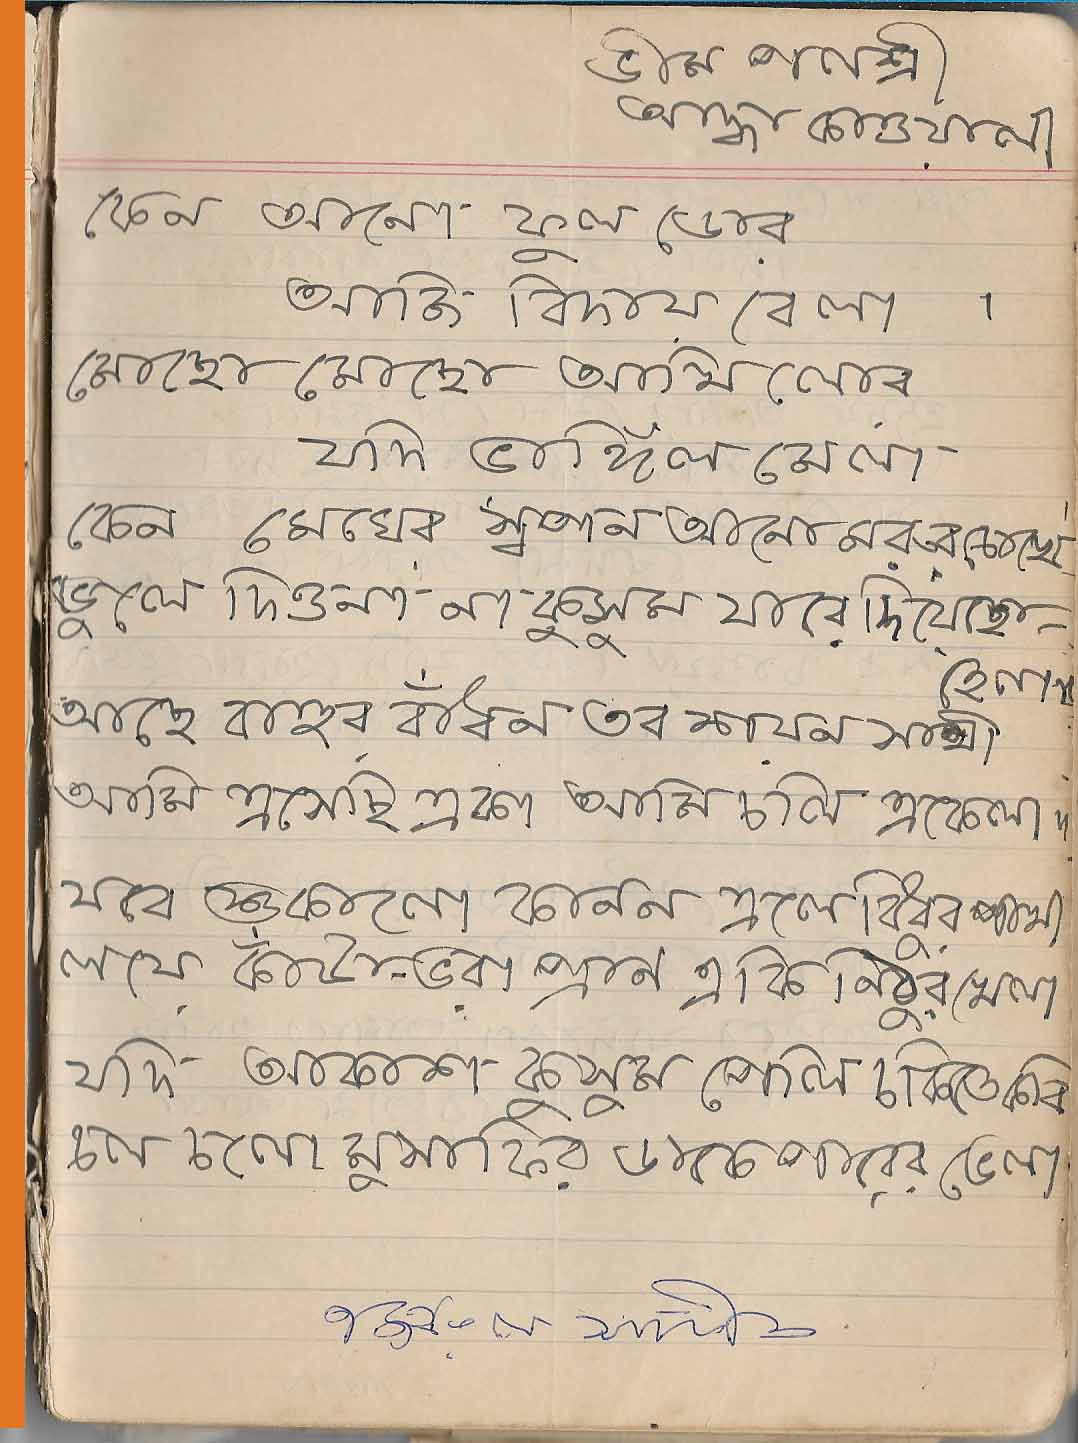 ভীম পলশ্রী
আদ্ধা কাওয়ালী
কেন আনো ফুল ডোর
আজি বিদায় বেলা ।
মোছো মোছো আঁখি লোর
যদি ভাঙ্গিল মেলা
কেন মেঘের স্বপন আনো মরুর চোখে
ভুলে দিওনা না কুসুম যারে দিয়েছো
হেলা॥
আছে বাহুর বাঁধন তব শয়ন সাথী
আমি এসেছি একা আমি চলি একেলা।
যবে শুকালো কানন এলে বিধুর পাখী
লয়ে কাঁটা-ভরা প্রান একি নিঠুর খেলা
যদি আকাশ কুসুম পেলি চকিতে কবি
চল চলো মুসাফির ডাকে পারের ভেলা